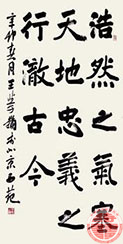 浩然之氣塞
天地忠義之
行澈古今
辛卯春月王学岭书北京西苑